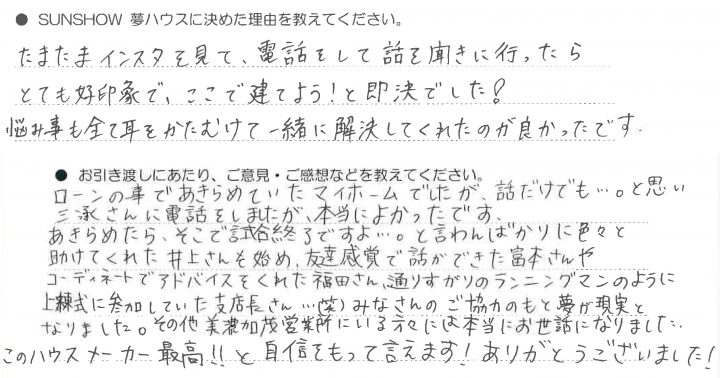 ● SUNSHOW 夢ハウスに決めた理由を教えてください。
たまたまインスタを見て、電話をして話を聞きに行ったら
とても好印象で、ここで建てよう！と即決でした！
悩み事も全て耳をかたむけて一緒に解決してくれたのが良かったです.
● お引き渡しにあたり、ご意見・ご感想などを教えてください。
ローンの事であきらめていたマイホームでしたが、話だけでも…。と思い
三承さんに電話をしましたが、本当によかったです.
あきらめたら、そこで試合終了ですよ…。と言わんばかりに色々と
助けてくれた井上さんを始め、友達感覚で話ができた富本さんや
コーディネートでアドバイスをくれた福田さん、通りすがりのランニングマンのように
上棟式に参加していた支店長さん…(笑)みなさんのご協力のもと夢が現実と
なりました。その他美濃加茂営業所にいる方々には本当にお世話になりました.
このハウスメーカー最高!!と自信をもって言えます！ありがとうございました！